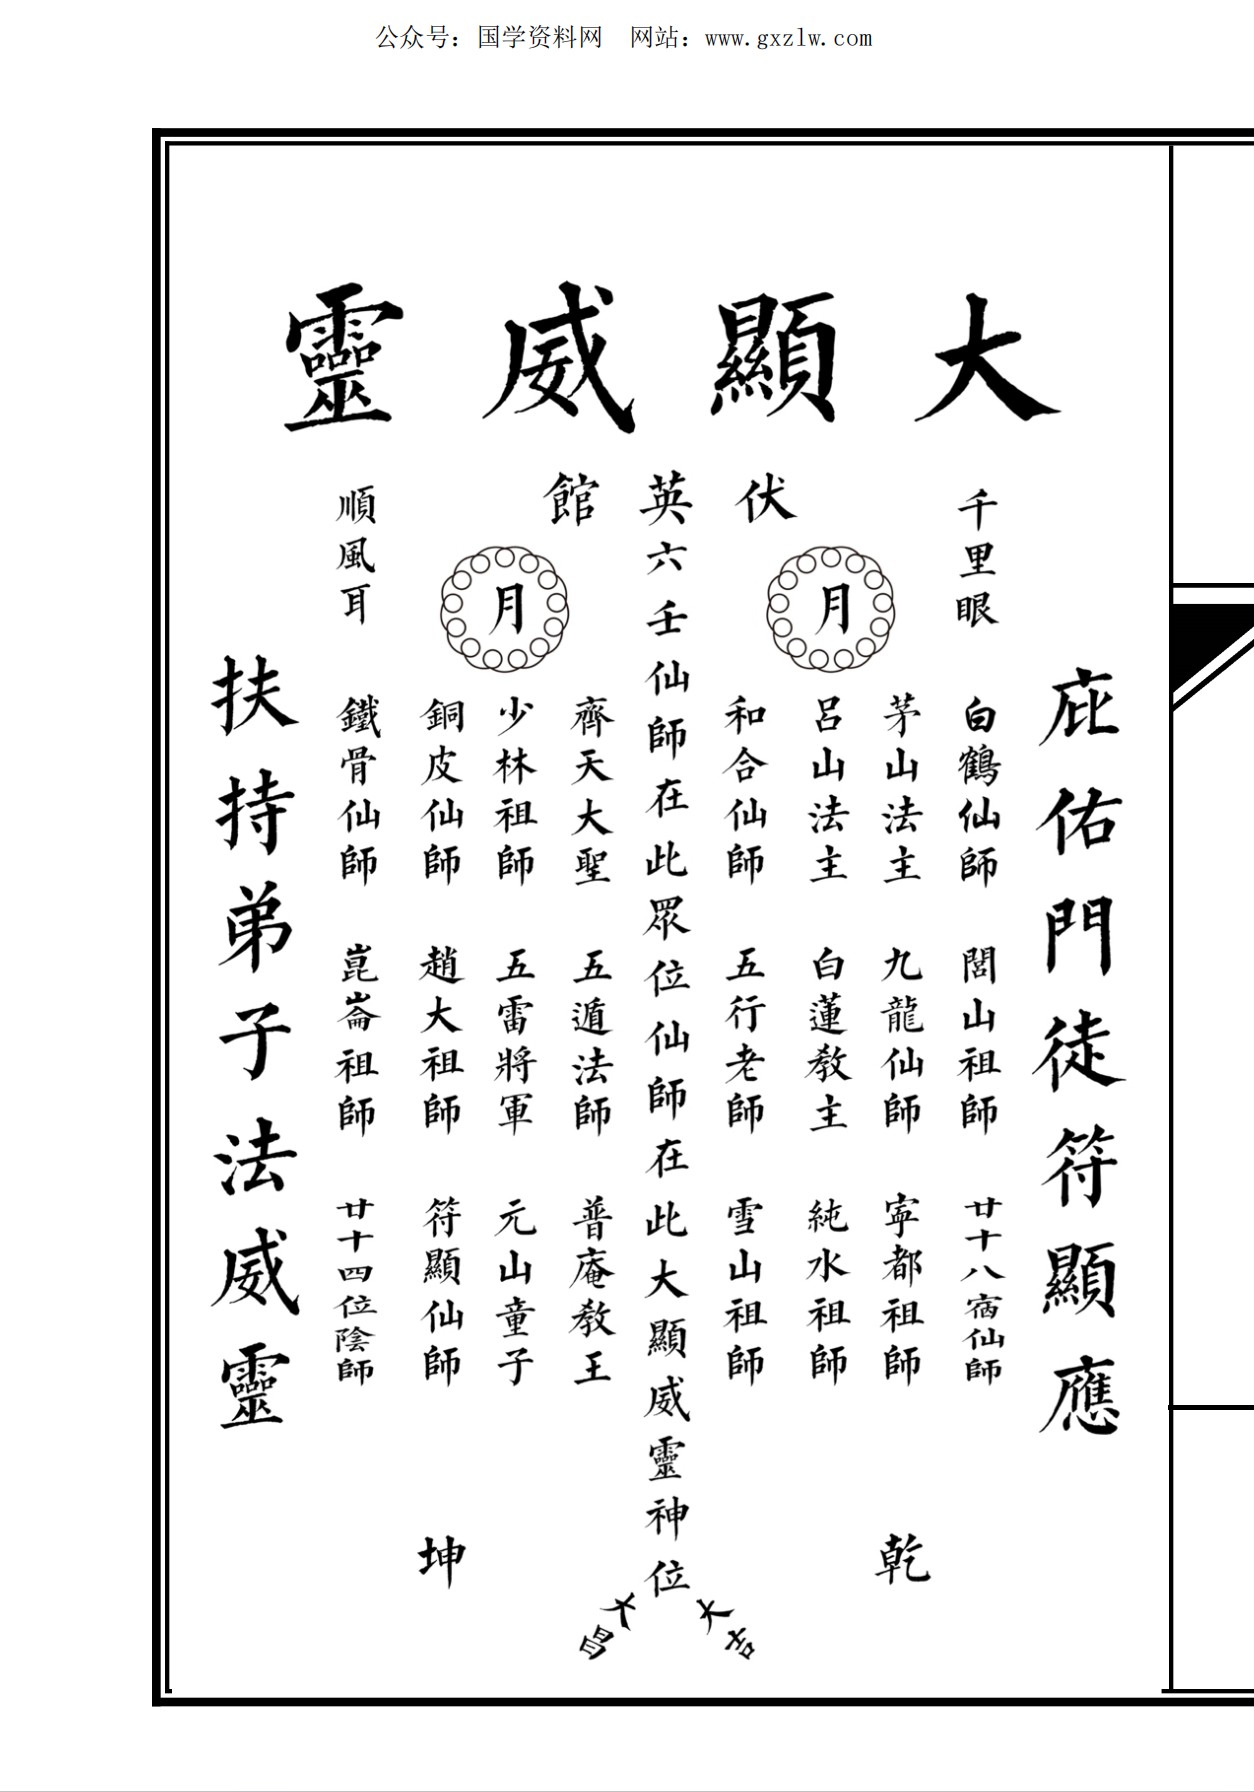 公众号：国学资料网　网站：www.gxzlw.com
大顯威靈
伏英館
庇佑門徒符顯應
千里眼
白鶴仙師
閭山祖師
廿十八宿仙師
茅山法主
九龍仙師
寧都祖師
乾
月
呂山法主
白蓮教主
純水祖師
和合仙師
五行老師
雪山祖師
六壬仙師在此眾位仙師在此大顯威靈神位
大吉
大昌
齊天大聖
五遁法師
普庵教王
月
少林祖師
五雷將軍
元山童子
銅皮仙師
趙大祖師
符顯仙師
坤
順風耳
鐵骨仙師
崑崙祖師
廿十四位陰師
扶持弟子法威靈